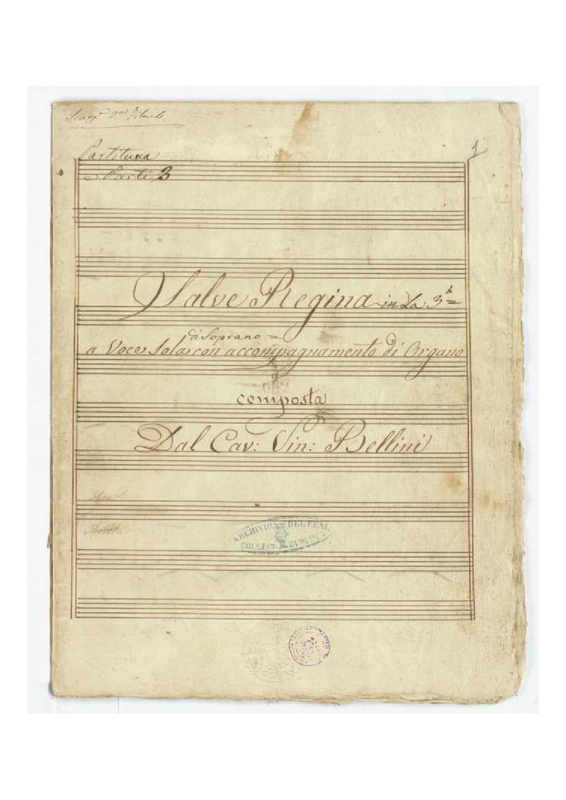 1
Partitura
e Parti 3
Salve Regina in La 3.ª b
di Soprano =
a Voce Sola con accompagnamento di Organo
composta
Dal Cav: Vin: Bellini
ARCHIVIO DEL REAL
COLLEG. DI MUSICA